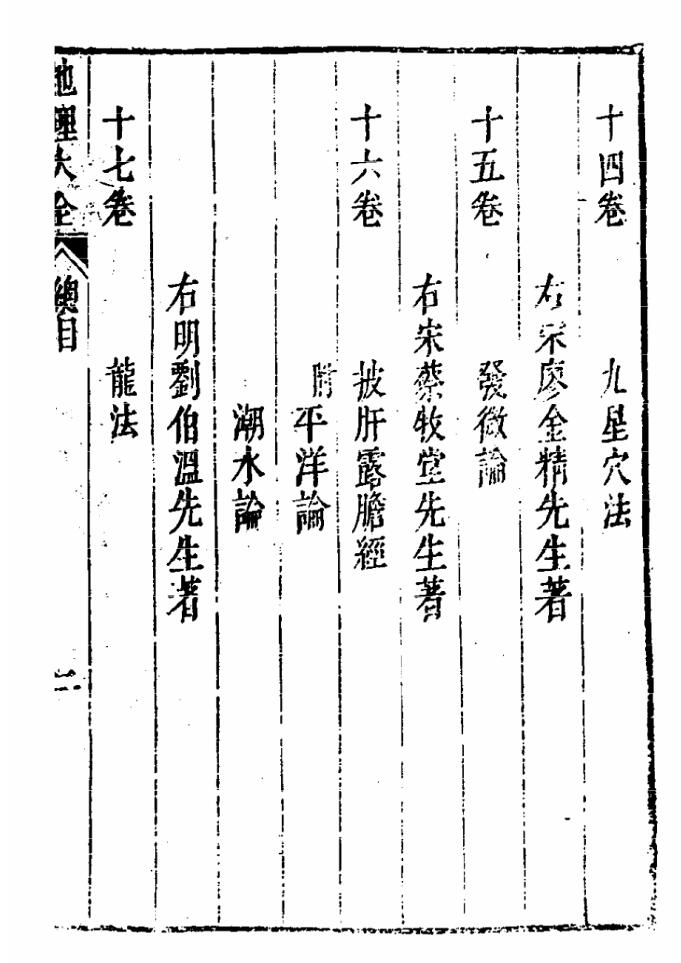 十四卷 九星穴法
右宋廖金精先生著
十五卷 發微論
右宋蔡牧堂先生著
十六卷 披肝露膽經
附平洋論
潮水論
右明劉伯溫先生著
十七卷 龍法
地理大全 總目 二